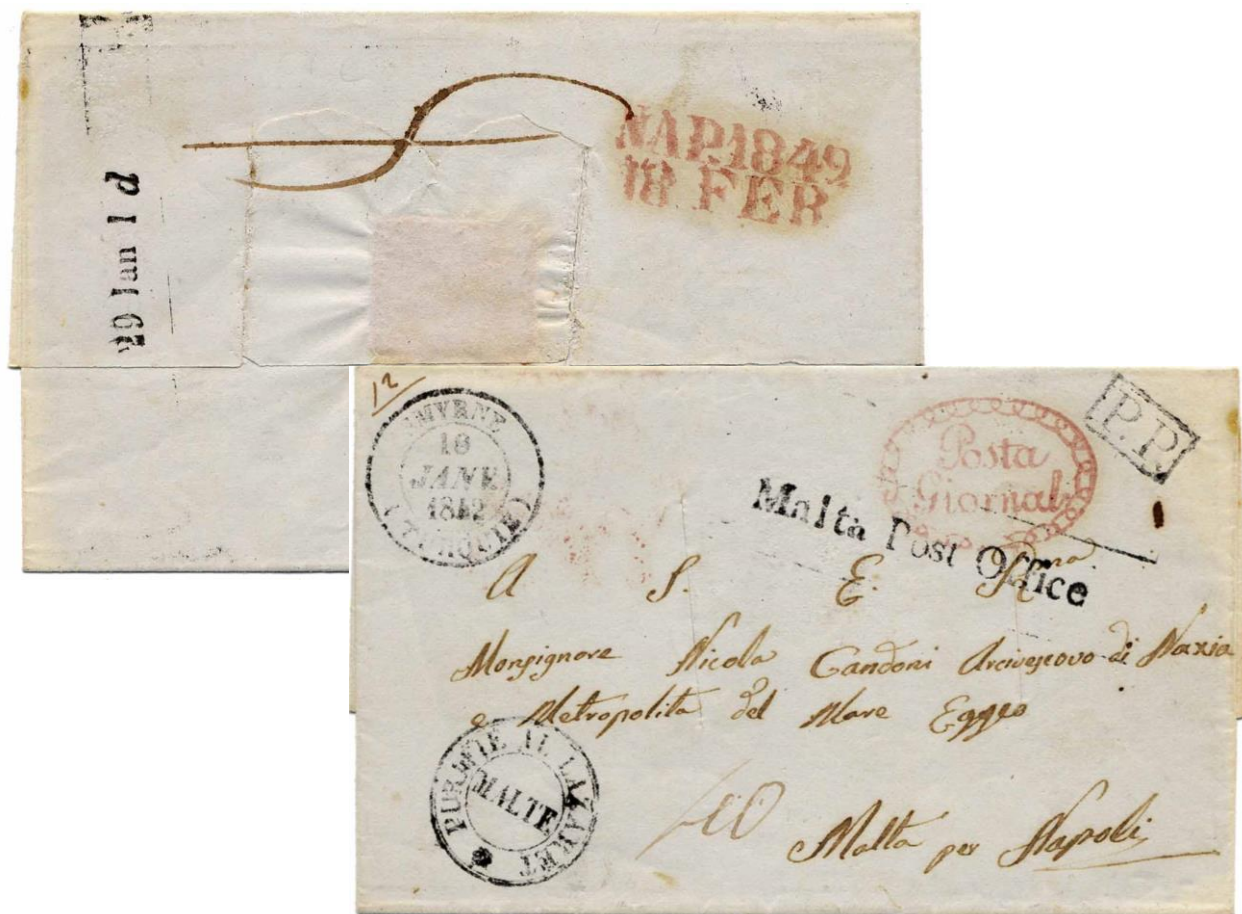 NAP.1849
18 FEB
29 Ian 1 d
12
SMYRNE
10
JANV
1842
(TURQUIE)
Posta
Giornal
P.P.
Malta Post Office
A S. E. R.ma
Monsignore Nicola Candoni Arcivescovo di Naxia
e Metropolita del Mare Eggeo
PURIFIÉ AL LAZARET
MALTE
40
Malta per Napoli